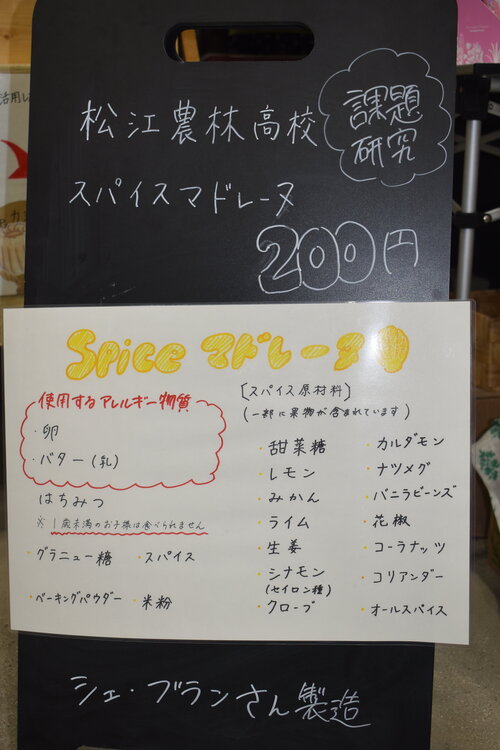 活用し
松江農林高校
課題
研究
スパイスマドレーヌ
200円
Spice マドレーヌ
使用するアレルギー物質
・卵
・バター(乳)
はちみつ
※1歳未満のお子様は食べられません
・グラニュー糖 ・スパイス
・ベーキングパウダー ・米粉
[スパイス原材料]
(一部に果物が含まれています)
・甜菜糖 ・カルダモン
・レモン ・ナツメグ
・みかん ・バニラビーンズ
・ライム ・花椒
・生姜 ・コーラナッツ
・シナモン ・コリアンダー
(セイロン種)
・クローブ ・オールスパイス
シェ・ブランさん製造